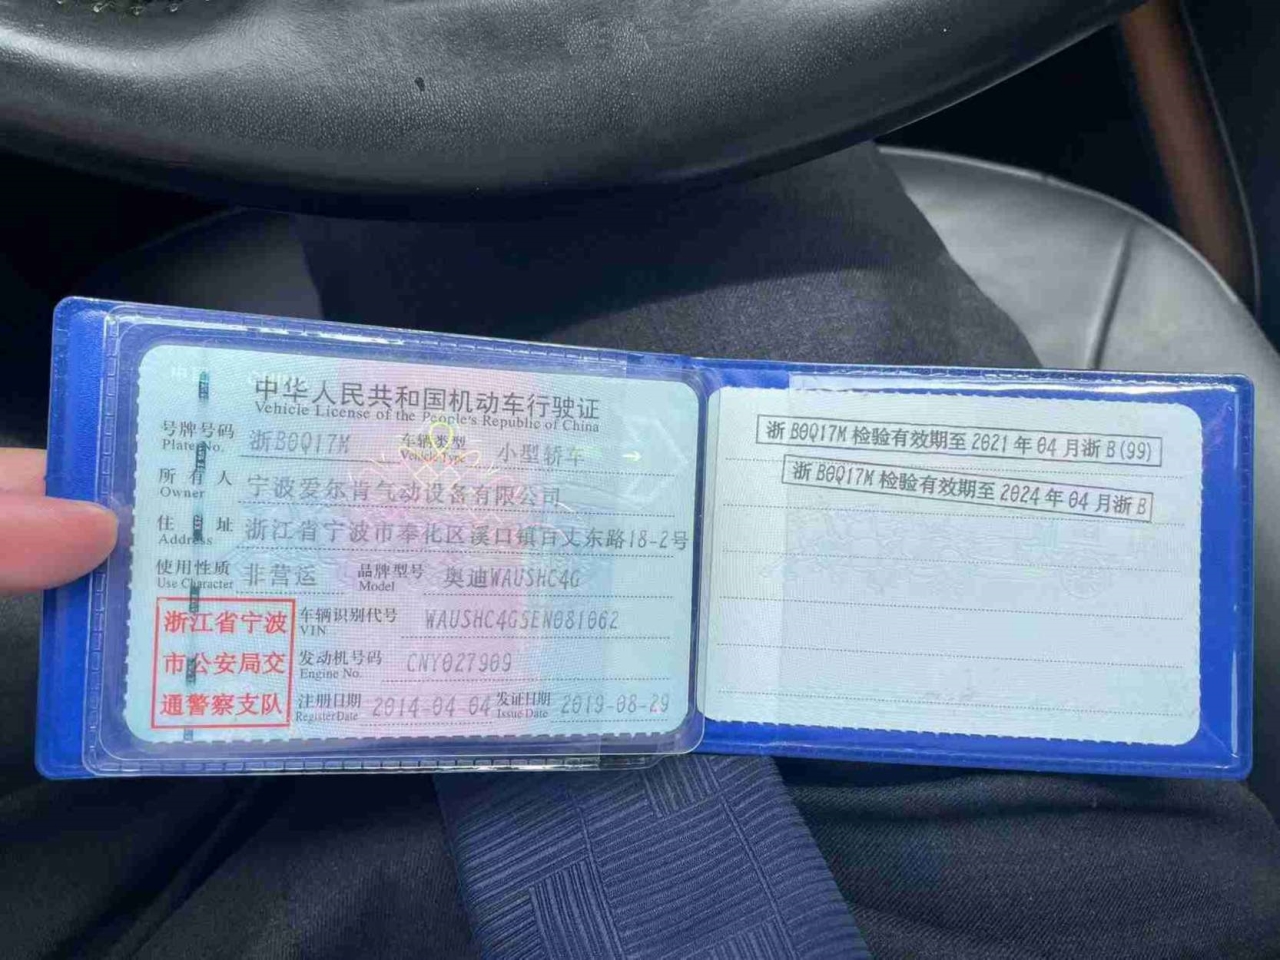 中华人民共和国机动车行驶证
Vehicle License of the People's Republic of China
号牌号码 浙B0Q17M 车辆类型 小型轿车
Plate No. Vehicle Type
所有人 宁波爱尔肯气动设备有限公司
Owner
住址 浙江省宁波市奉化区溪口镇百丈东路18-2号
Address
使用性质 非营运 品牌型号 奥迪WAUSHC4G
Use Character Model
浙江省宁波
市公安局交
通警察支队
车辆识别代号 WAUSHC4G5EN081062
VIN
发动机号码 CNY027909
Engine No.
注册日期 2014-04-04 发证日期 2019-08-29
Register Date Issue Date
浙B0Q17M检验有效期至2021年04月浙B(99)
浙B0Q17M检验有效期至2024年04月浙B